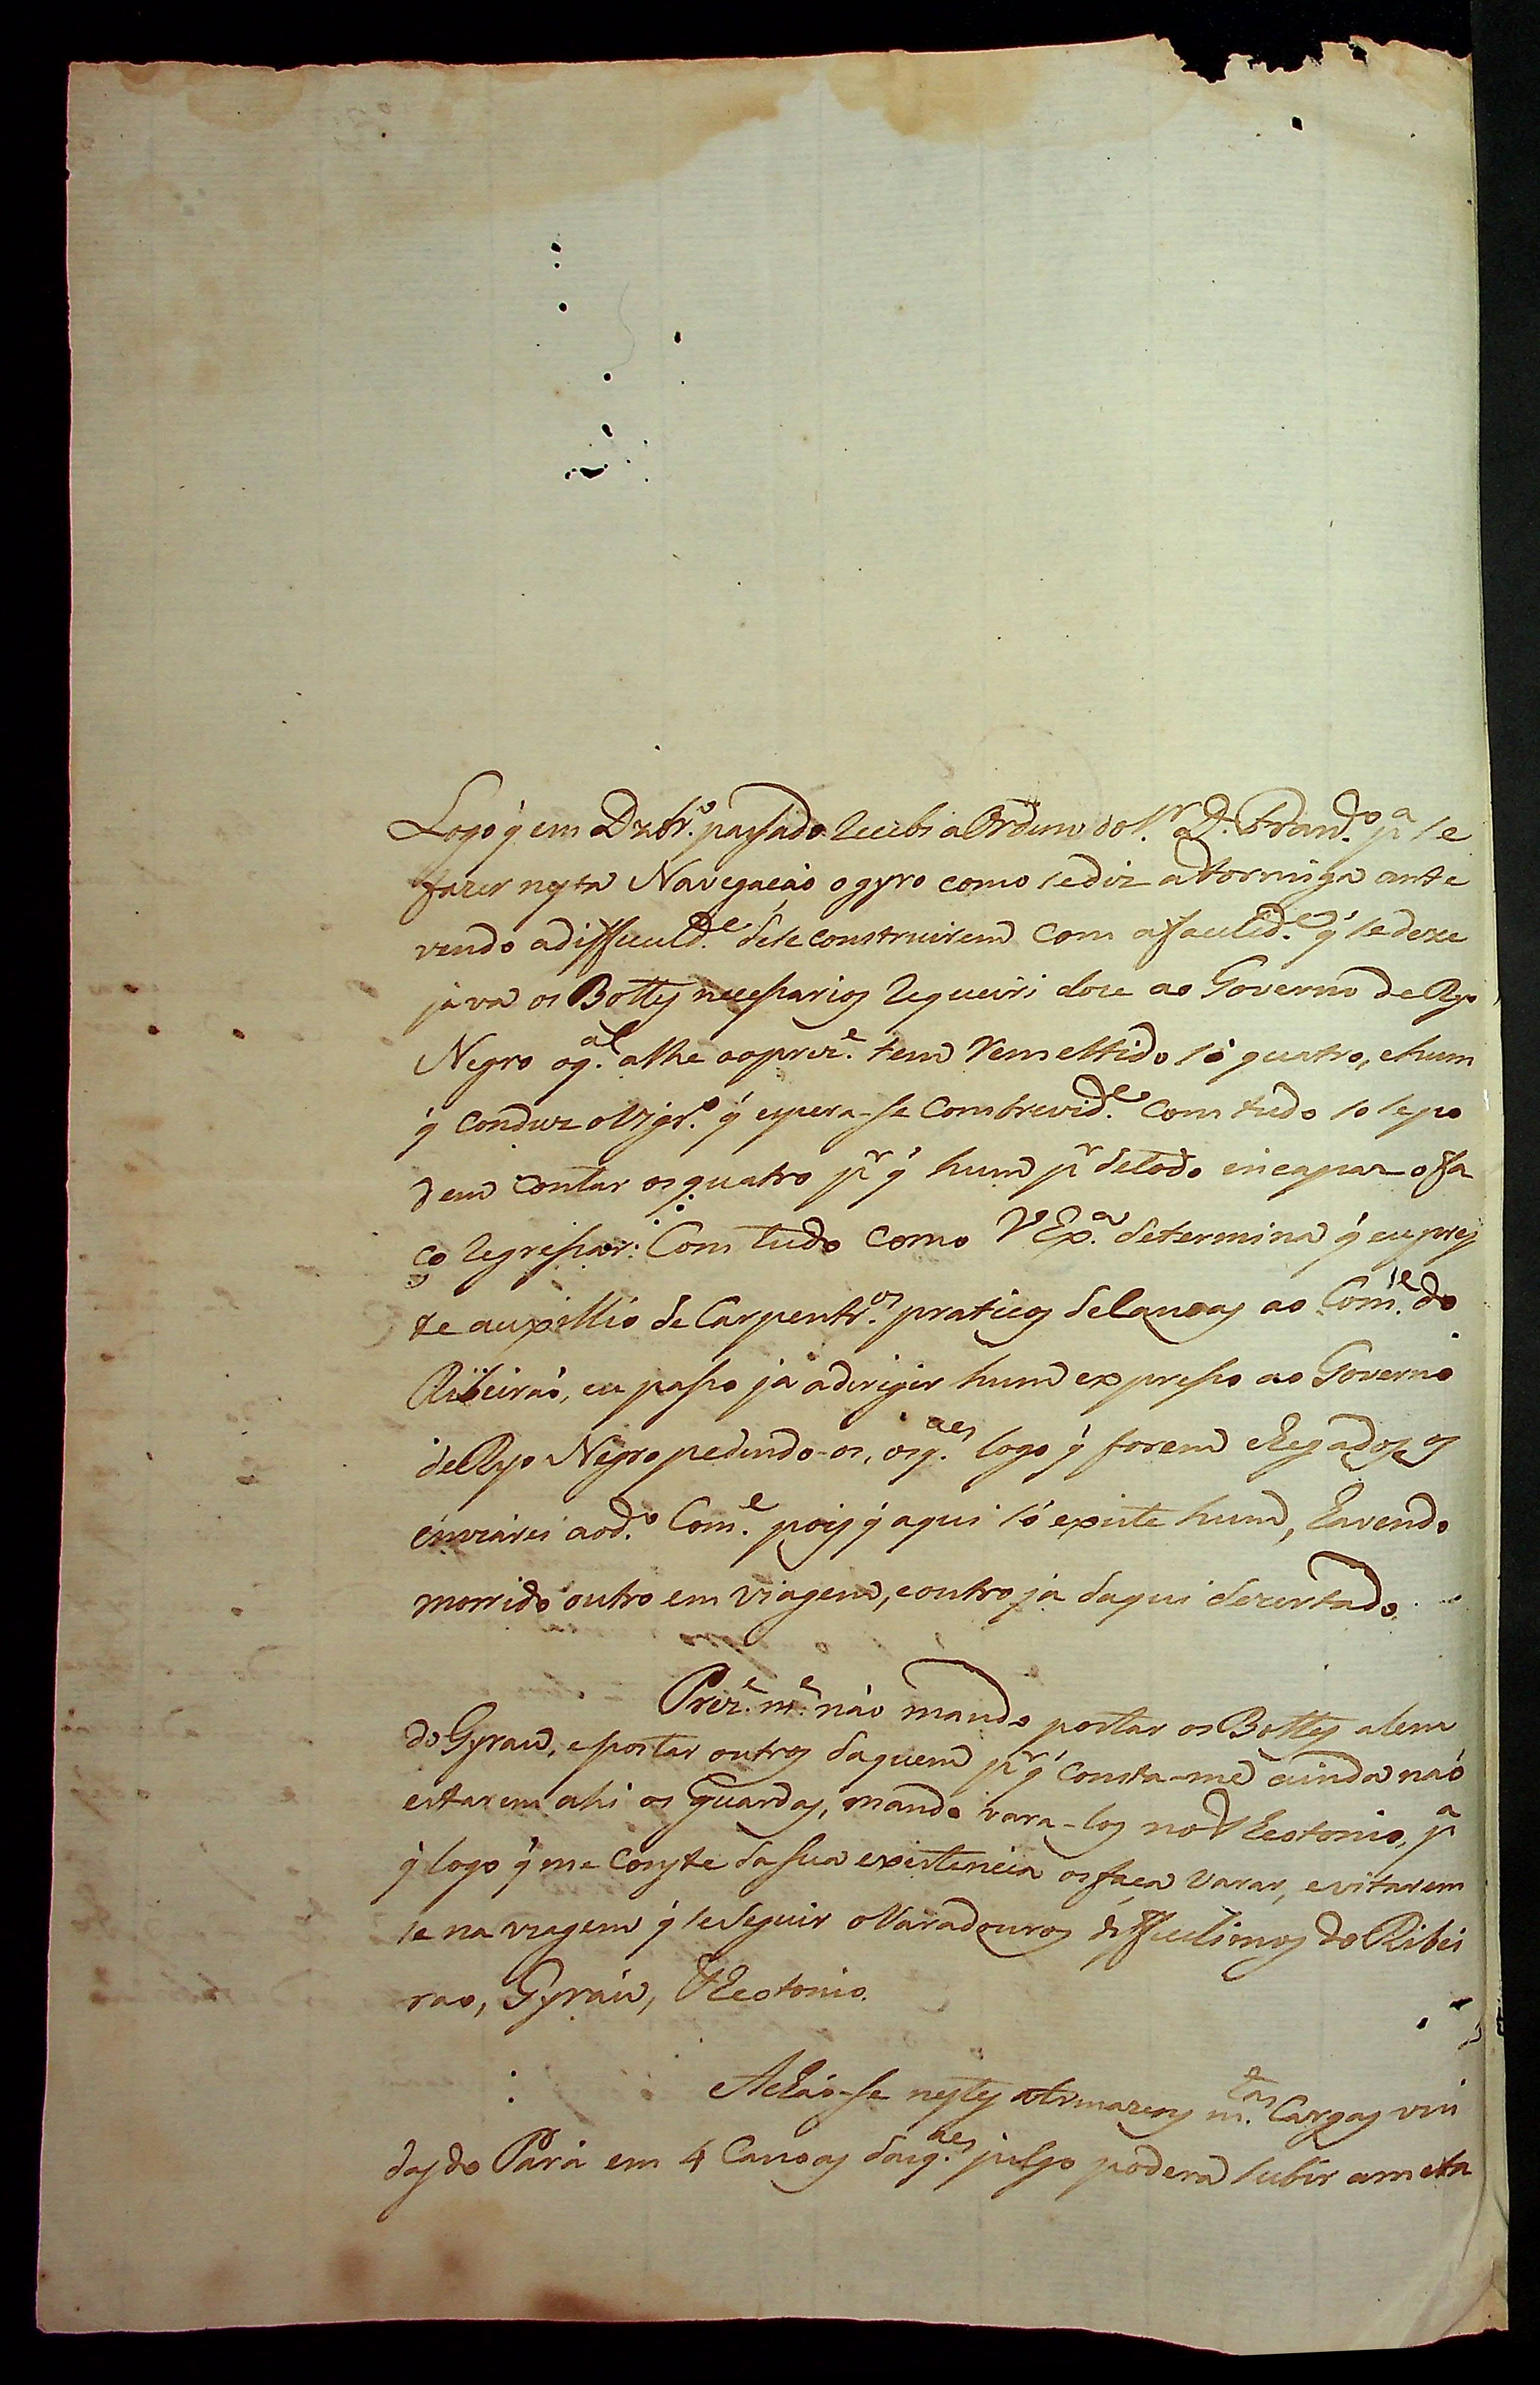 Logo q̃ em Dzbr.º passado recebi a Ordem do S.r D. Fran.do p.a se
fazer nesta Navegação o gyro como se diz a formiga ante
vendo a difficuld.e de se construirem com a facelid.e q̃ se deze
java os Bottes necessarios requeiri doze ao Governo de Ryo
Negro o q.al athe ao prez.e tem remettido só quatro, e hum
q̃ conduz o Vigr.º q̃ espera-se com brevid.e Com tudo so se po
dem contar os quatro p.r q̃ hum p.r de todo encapaz o fa
ço regressar: Com tudo como V Ex.a determina q̃ eu pres
te auxillio de Carpentr.os praticos de Canoas ao Com.te do
Ribeirão, eu passo já a dirigir hum expresso ao Governo
de Ryo Negro pedindo-os, os q.aes logo q̃ forem chegados os
enviárei ao d.º Com.e pois q̃ aqui só existe hum, havendo
morrido outro em viagem, e outro já daqui dezertado.
Prez.e m.e não mando postar os Bottes alem
do Gyrau, e postar outros daquem p.r q̃ consta-me ainda não
estarem ahi os Guardas, mando vara-los no Theotonio, p.a
q̃ logo q̃ me conste da sua existencia os faça varar, e vitarem
se na viagem q̃ se seguir o Varadouros difficilimos do Ribei
rao, Gyráu, Theotonio.
Achão-se nestes Armazens m.tas Cargas vin
das do Pará em 4 Canoas das q.aes julgo poderá subir ameta